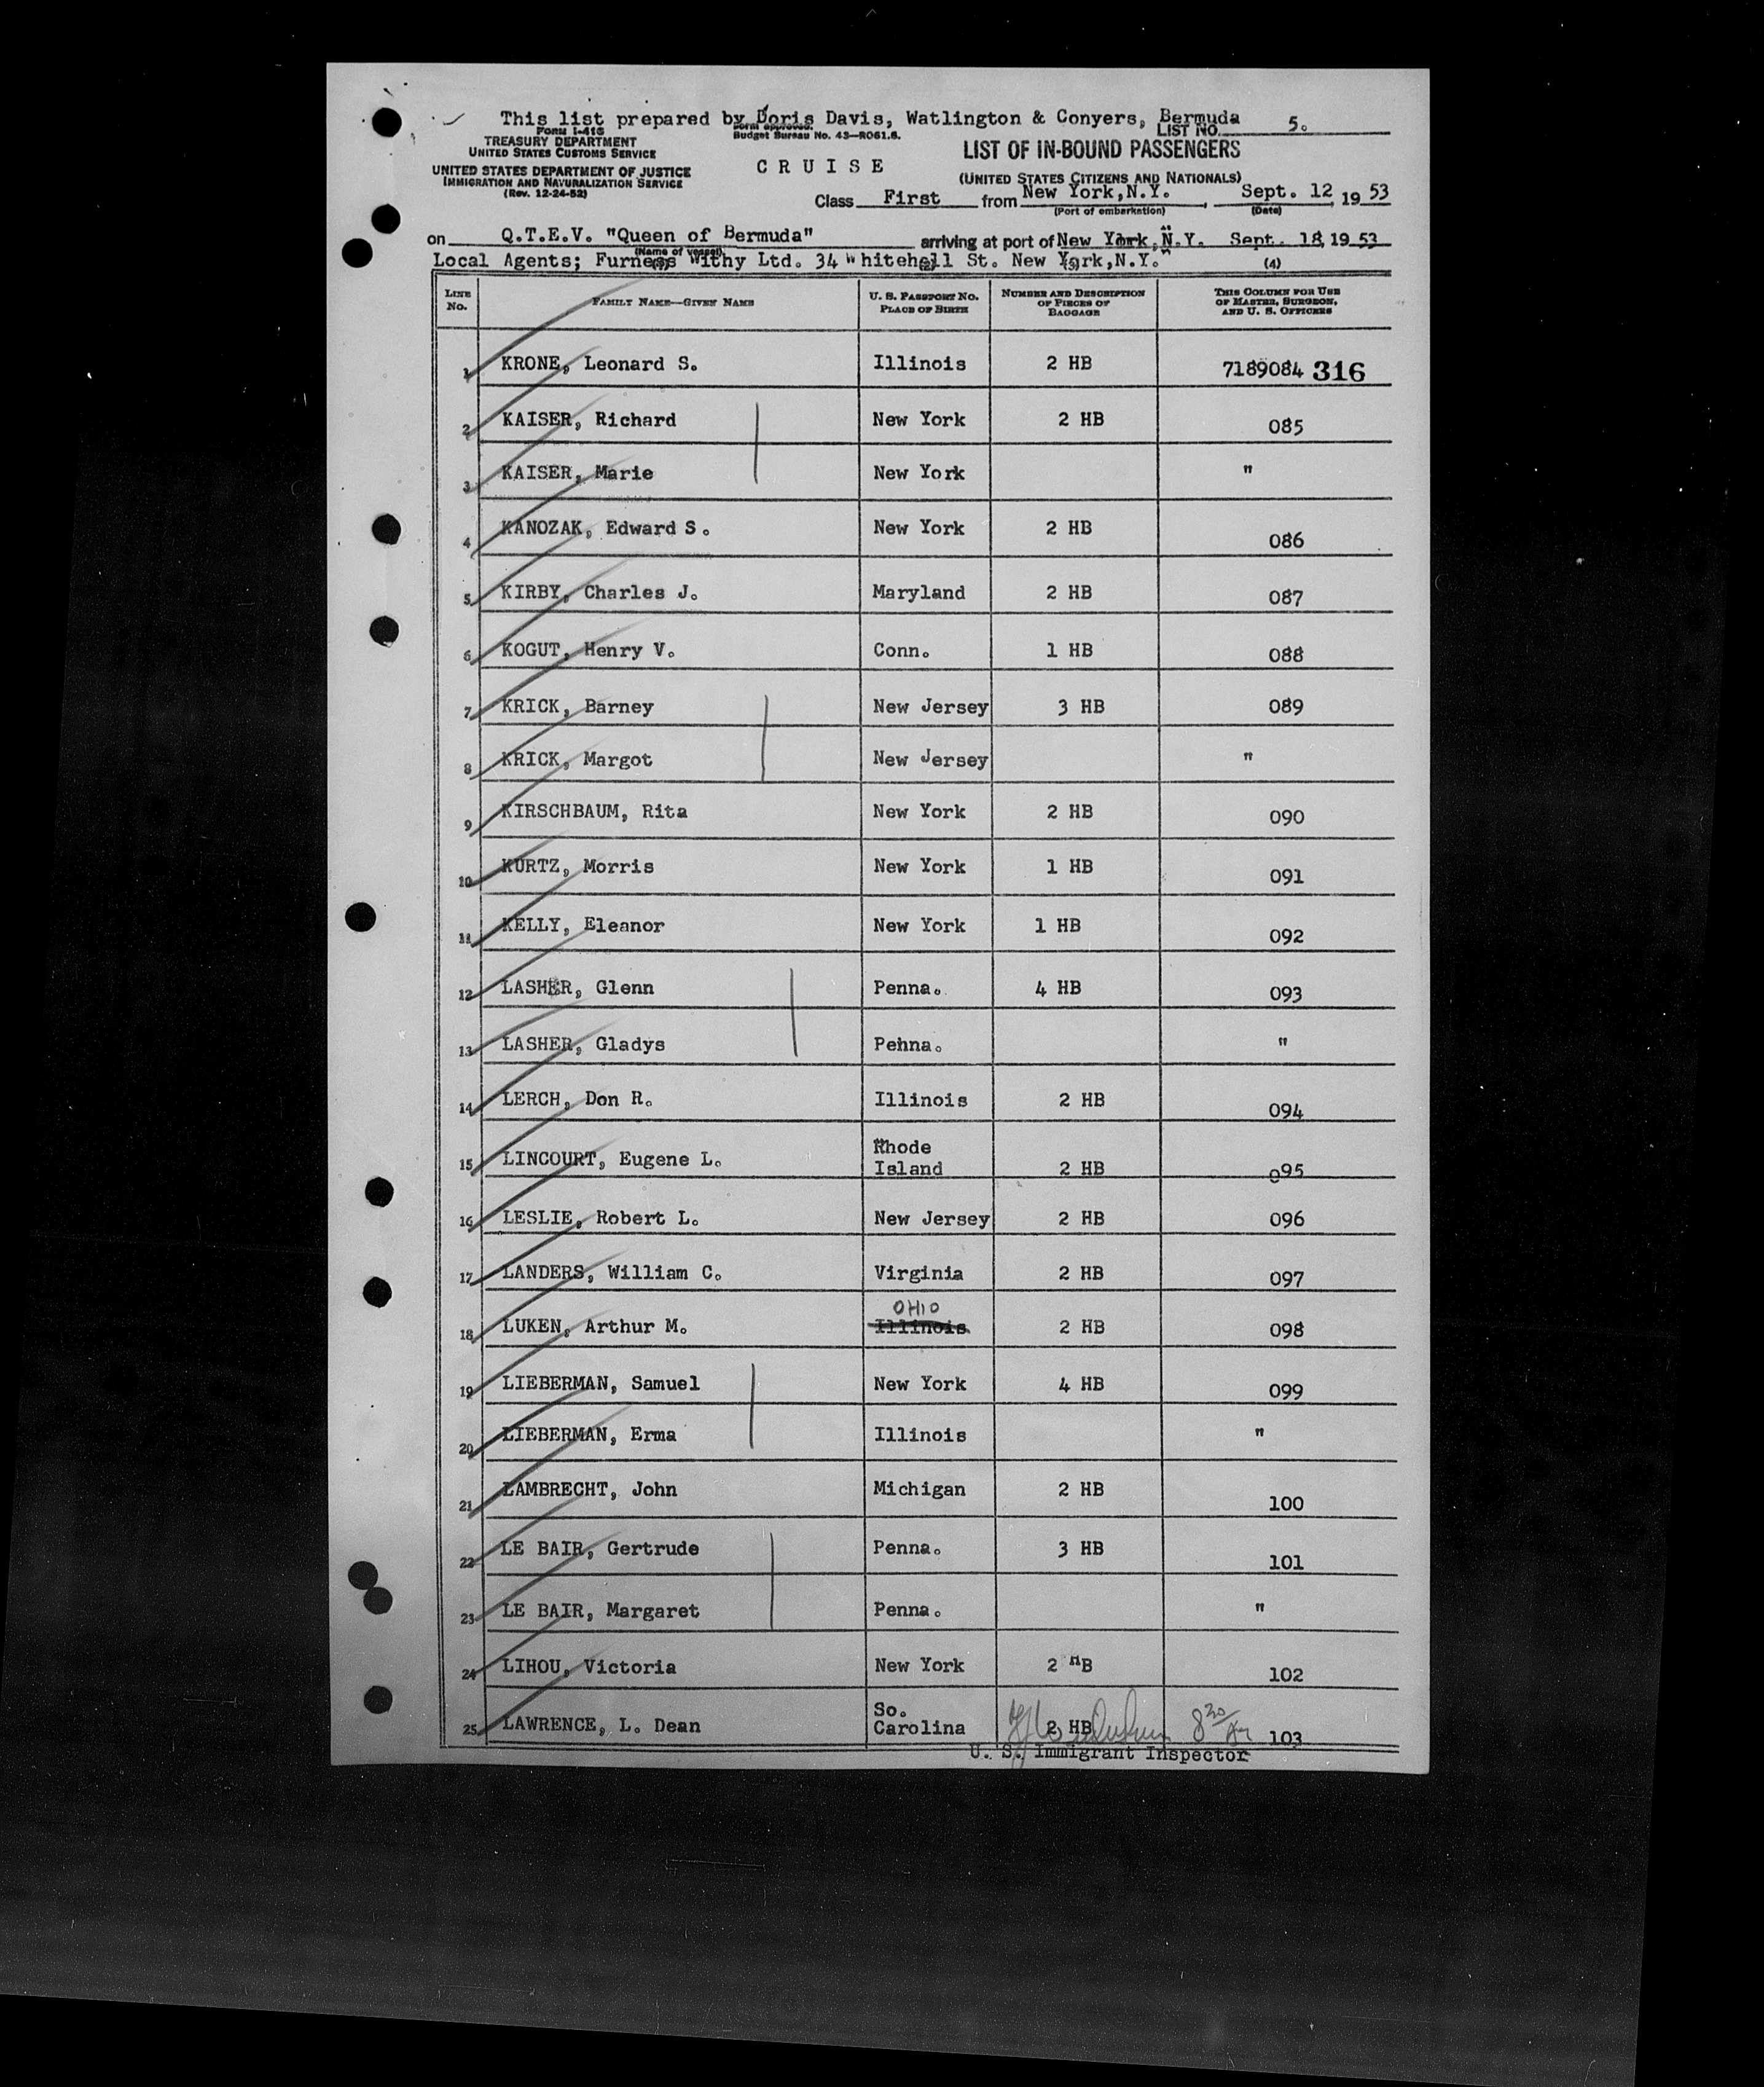 This list prepared by Doris Davis, Watlington & Conyers, Bermuda
Form I-418
TREASURY DEPARTMENT
UNITED STATES CUSTOMS SERVICE
UNITED STATES DEPARTMENT OF JUSTICE
IMMIGRATION AND NATURALIZATION SERVICE
(Rev. 12-24-52)
Form approved.
Budget Bureau No. 43—R061.8.
CRUISE
LIST NO. 5.
LIST OF IN-BOUND PASSENGERS
(UNITED STATES CITIZENS AND NATIONALS)
Class First from New York, N.Y. , Sept. 12, 19 53
(Port of embarkation) (Date)
on Q.T.E.V. "Queen of Bermuda" arriving at port of New York, N.Y. Sept. 18, 19 53
(Name of vessel)
Local Agents; Furness Withy Ltd. 34 Whitehall St. New York, N.Y.
(1) (2) (3) (4)
LINE No. FAMILY NAME—GIVEN NAME U. S. PASSPORT NO. PLACE OF BIRTH NUMBER AND DESCRIPTION OF PIECES OF BAGGAGE THIS COLUMN FOR USE OF MASTER, SURGEON, AND U. S. OFFICERS
1 KRONE, Leonard S. Illinois 2 HB 7189084 316
2 KAISER, Richard New York 2 HB 085
3 KAISER, Marie New York "
4 KANOZAK, Edward S. New York 2 HB 086
5 KIRBY, Charles J. Maryland 2 HB 087
6 KOGUT, Henry V. Conn. 1 HB 088
7 KRICK, Barney New Jersey 3 HB 089
8 KRICK, Margot New Jersey "
9 KIRSCHBAUM, Rita New York 2 HB 090
10 KURTZ, Morris New York 1 HB 091
11 KELLY, Eleanor New York 1 HB 092
12 LASHER, Glenn Penna. 4 HB 093
13 LASHER, Gladys Penna. "
14 LERCH, Don R. Illinois 2 HB 094
15 LINCOURT, Eugene L. Rhode Island 2 HB 095
16 LESLIE, Robert L. New Jersey 2 HB 096
17 LANDERS, William C. Virginia 2 HB 097
18 LUKEN, Arthur M. OHIO Illinois 2 HB 098
19 LIEBERMAN, Samuel New York 4 HB 099
20 LIEBERMAN, Erma Illinois "
21 LAMBRECHT, John Michigan 2 HB 100
22 LE BAIR, Gertrude Penna. 3 HB 101
23 LE BAIR, Margaret Penna. "
24 LIHOU, Victoria New York 2 HB 102
25 LAWRENCE, L. Dean So. Carolina 2 HB 103
U. S. Immigrant Inspector